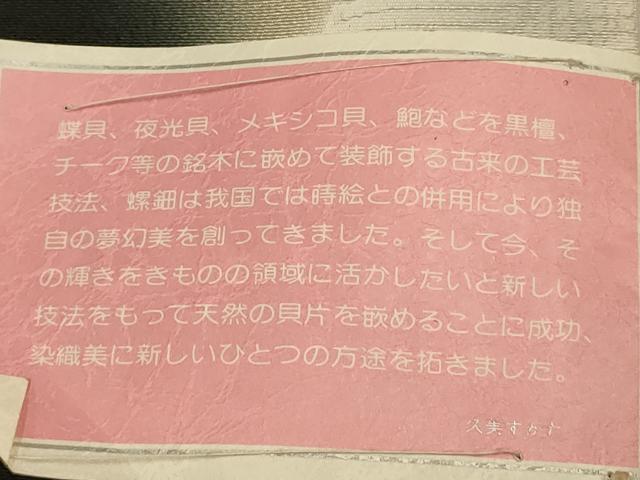 蝶貝、夜光貝、メキシコ貝、鮑などを黒檀、
チーク等の銘木に嵌めて装飾する古来の工芸
技法、螺鈿は我国では蒔絵との併用により独
自の夢幻美を創ってきました。そして今、そ
の輝きをきものの領域に活かしたいと新しい
技法をもって天然の貝片を嵌めることに成功、
染織美に新しいひとつの方途を拓きました。
久美すがた